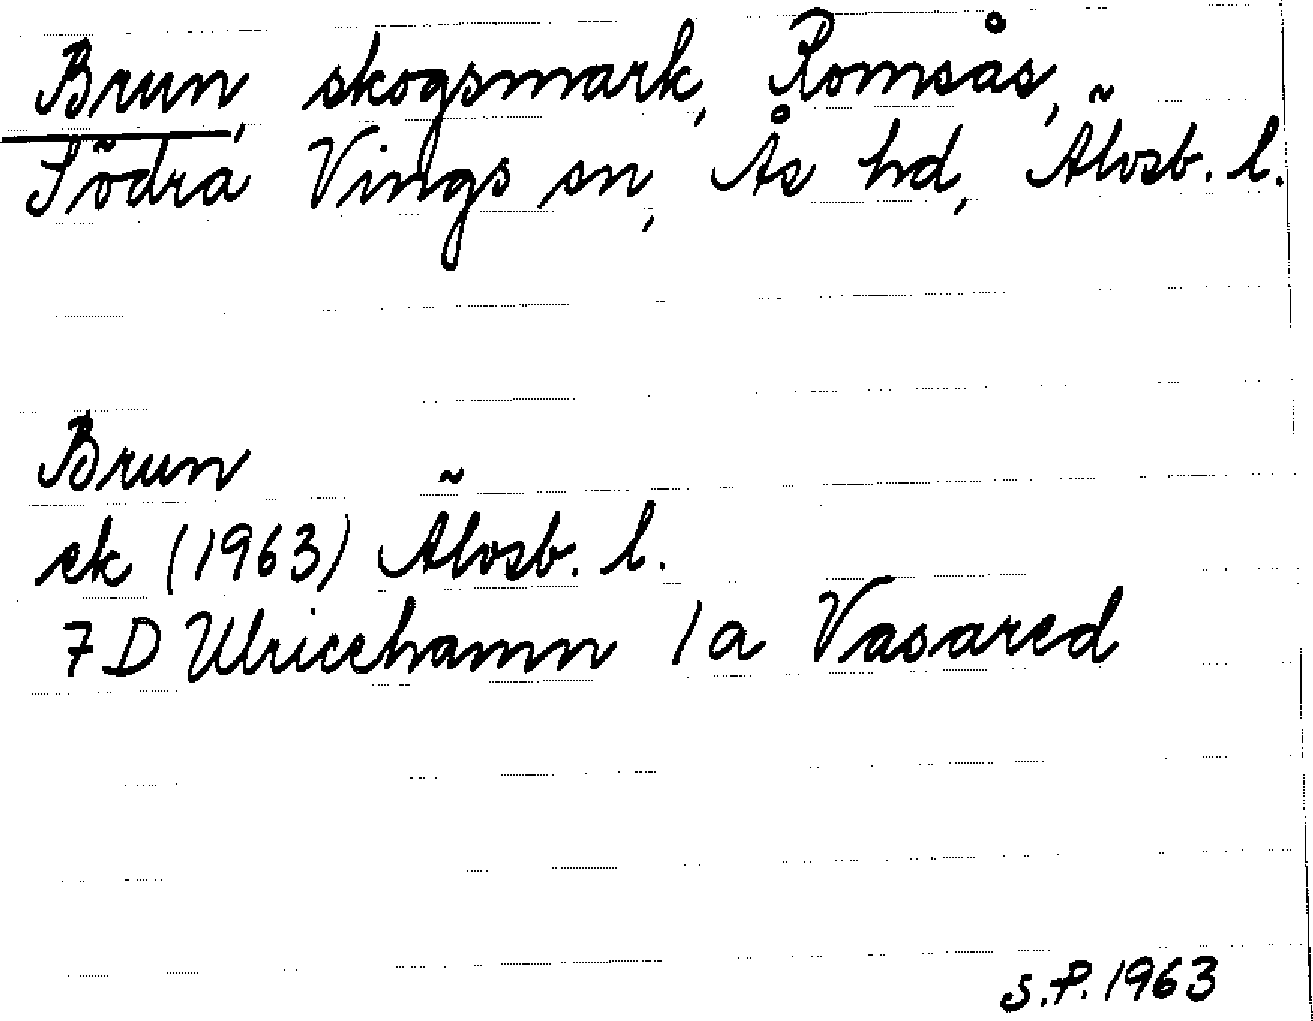 Brun, skogsmark, Romsås,
Södra Vings sn, Ås hd, Älvsb. l.
Brun
ek (1963) Älvsb. l.
7 D Ulricehamn 1 a Vasared
S.P. 1963